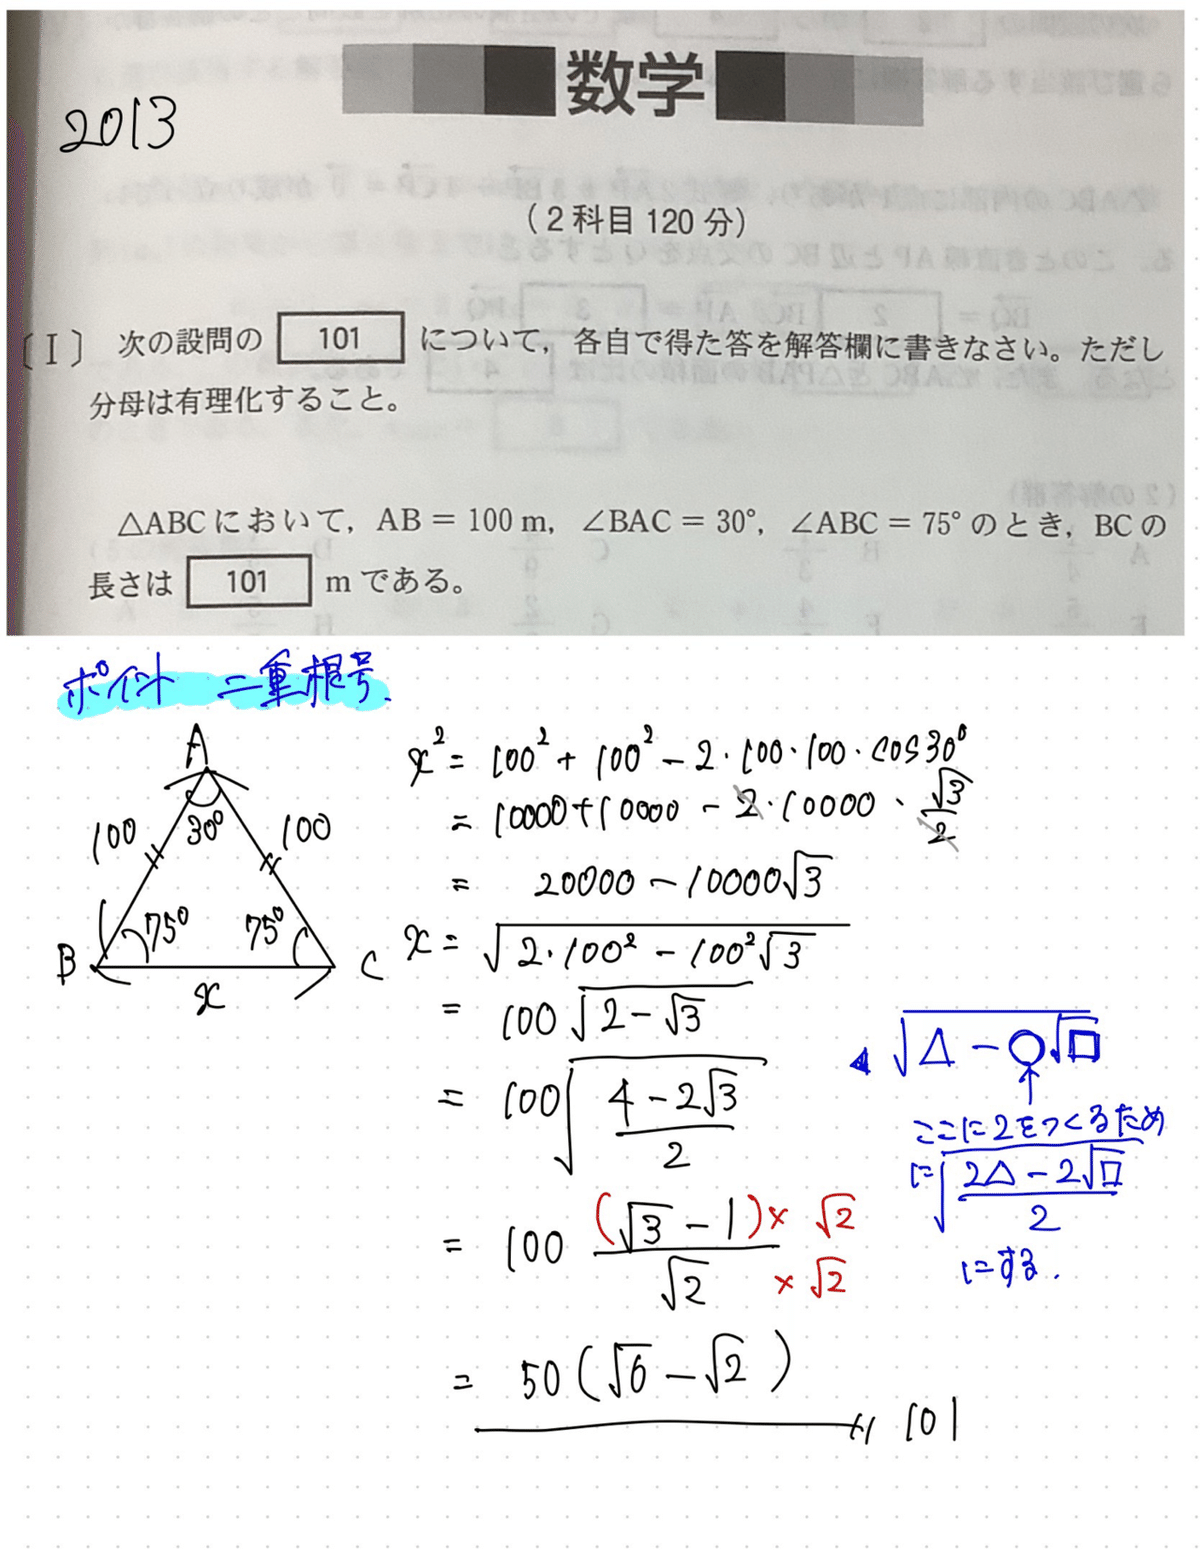 数学
2013
(2科目 120 分)
〔Ⅰ〕 次の設問の 101 について，各自で得た答を解答欄に書きなさい。ただし
分母は有理化すること。
△ABC において，AB = 100 m，∠BAC = 30°，∠ABC = 75° のとき，BC の
長さは 101 m である。
ポイント 二重根号.
A
100 30° 100
75° 75°
B C
x
x² = 100² + 100² - 2・100・100・cos30°
= 10000 + 10000 - 2・10000・√3/2
= 20000 - 10000√3
x = √(2・100² - 100²√3)
= 100√(2-√3)
= 100√((4-2√3)/2)
= 100 (√3-1)×√2 / √2 ×√2
= 50(√6-√2) 101
√(△-○√□)
↑
ここに2をつくるため
に√((2△-2√□)/2)
にする.